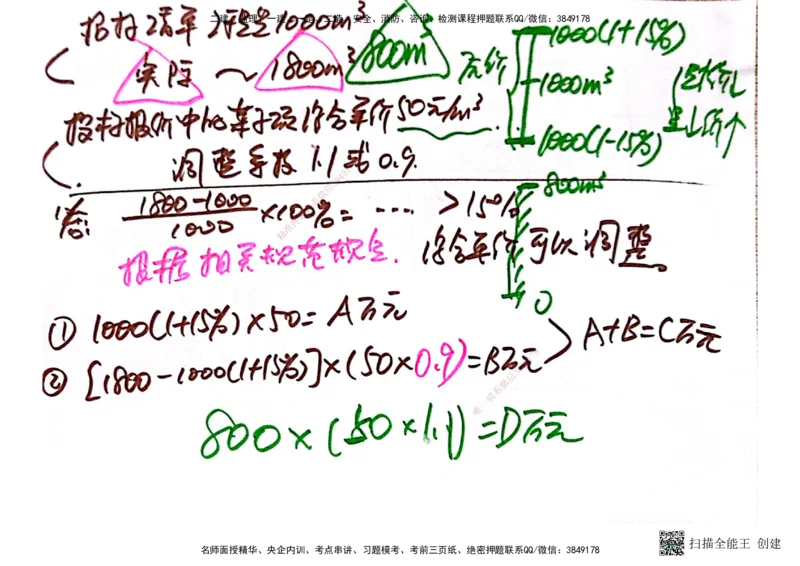 二建、监理、一建、一造、二造、安全、消防、咨询、检测课程押题联系QQ/微信：3849178
招标清单 工程量1000m³
实际 ～ 1800m³ 800m³
投标报价中的某子项综合单价50元/m³
调整系数 1.1或0.9.
1000(1+15%)
1000m³
1000(1-15%)
800m³
0
量大价↓
量小价↑
答: 1800-1000/1000 ×100%= … >15%
根据相关规范规定. 综合单价可以调整。
① 1000(1+15%)×50= A万元
② [1800-1000(1+15%)]×(50×0.9)=B万元
A+B=C万元
800×(50×1.1)=D万元
名师面授精华、央企内训、考点串讲、习题模考、考前三页纸、绝密押题联系QQ/微信：3849178
扫描全能王 创建